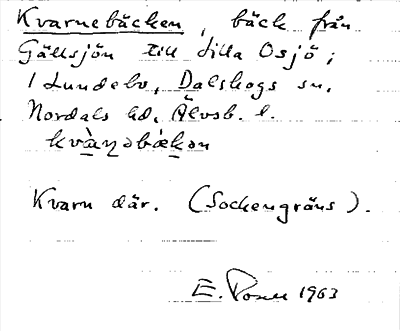 Kvarnebäcken, bäck från
Gällsjön till Lilla Osjö;
i Lundebo, Dalskogs sn.
Nordals hd, Älvsb. l.
kvàɳəbækən
Kvarn där. (Sockengräns).
E. 1963